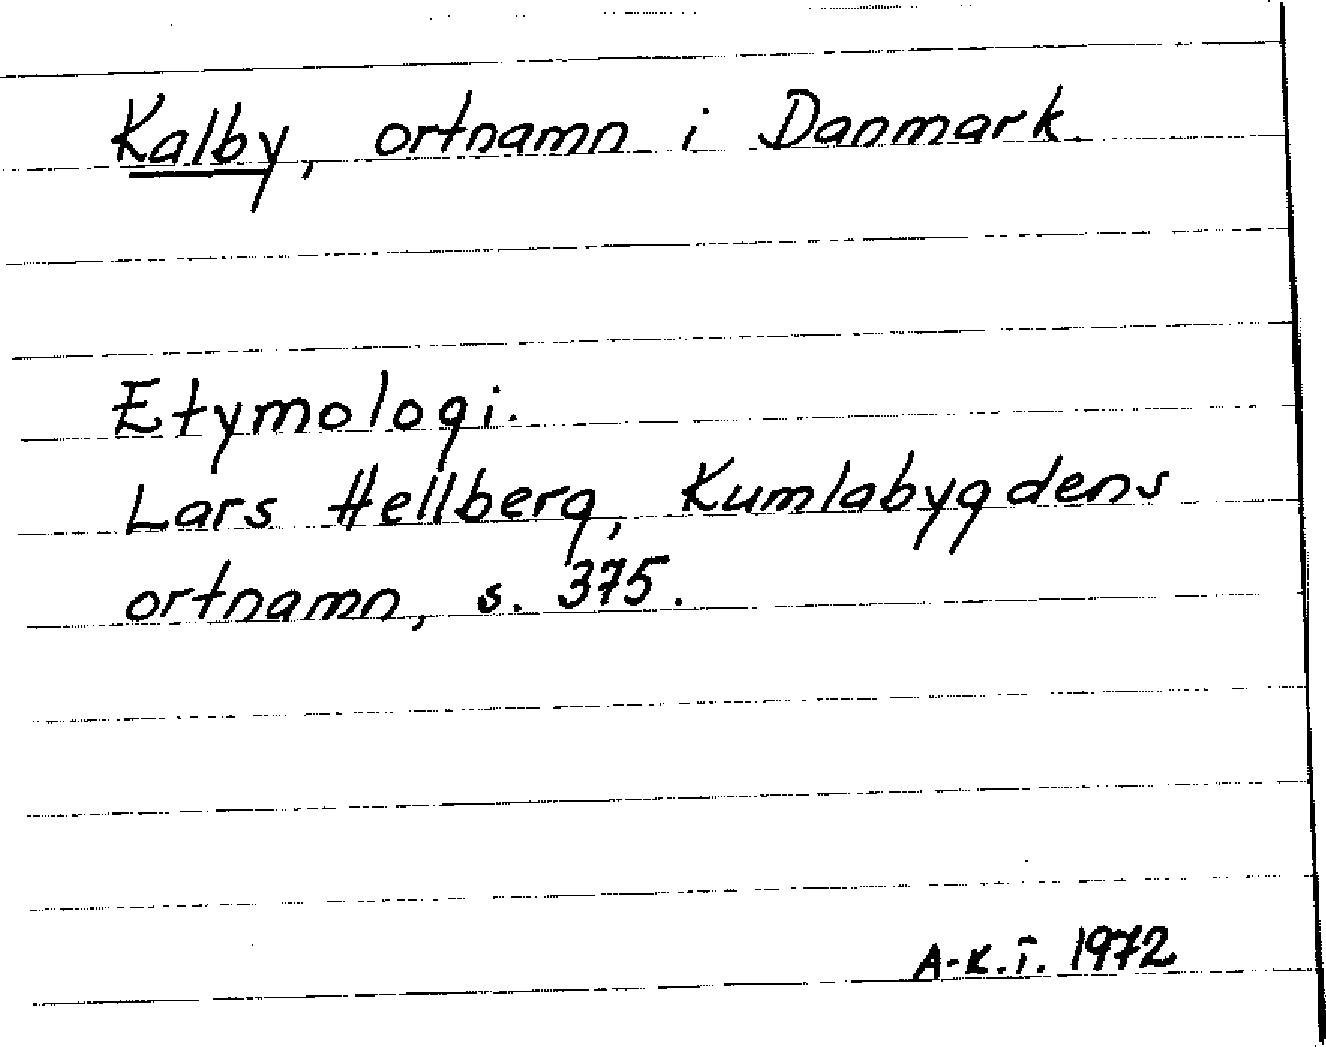 Kalby, ortnamn i Danmark.
Etymologi.
Lars Hellberg, Kumlabygdens
ortnamn, s. 375.
A-K.I. 1972